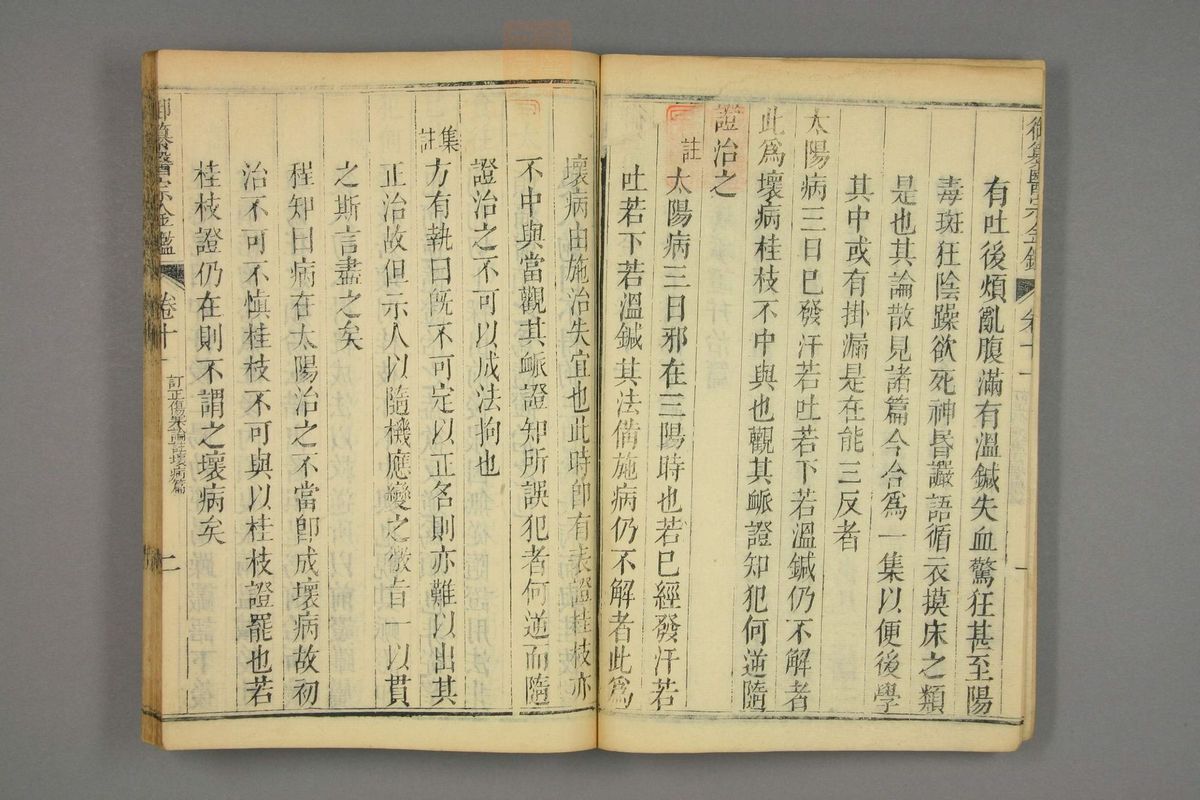 有吐後煩亂腹滿有溫鍼失血驚狂甚至陽
毒斑狂陰躁欲死神昏讝語循衣摸床之類
是也其論散見諸篇今合爲一集以便後學
其中或有掛漏是在能三反者
太陽病三日已發汗若吐若下若溫鍼仍不解者
此爲壞病桂枝不中與也觀其脈證知犯何逆隨
證治之
註 太陽病三日邪在三陽時也若已經發汗若
吐若下若溫鍼其法備施病仍不解者此爲
壞病由施治失宜也此時卽有表證桂枝亦
不中與當觀其脈證知所誤犯者何逆而隨
證治之不可以成法拘也
集註 方有執曰旣不可定以正名則亦難以出其
正治故但示人以隨機應變之微旨一以貫
之斯言盡之矣
程知曰病在太陽治之不當卽成壞病故初
治不可不慎桂枝不可與以桂枝證罷也若
桂枝證仍在則不謂之壞病矣
御纂醫宗金鑑 卷十一 訂正傷寒論註壞病篇 二